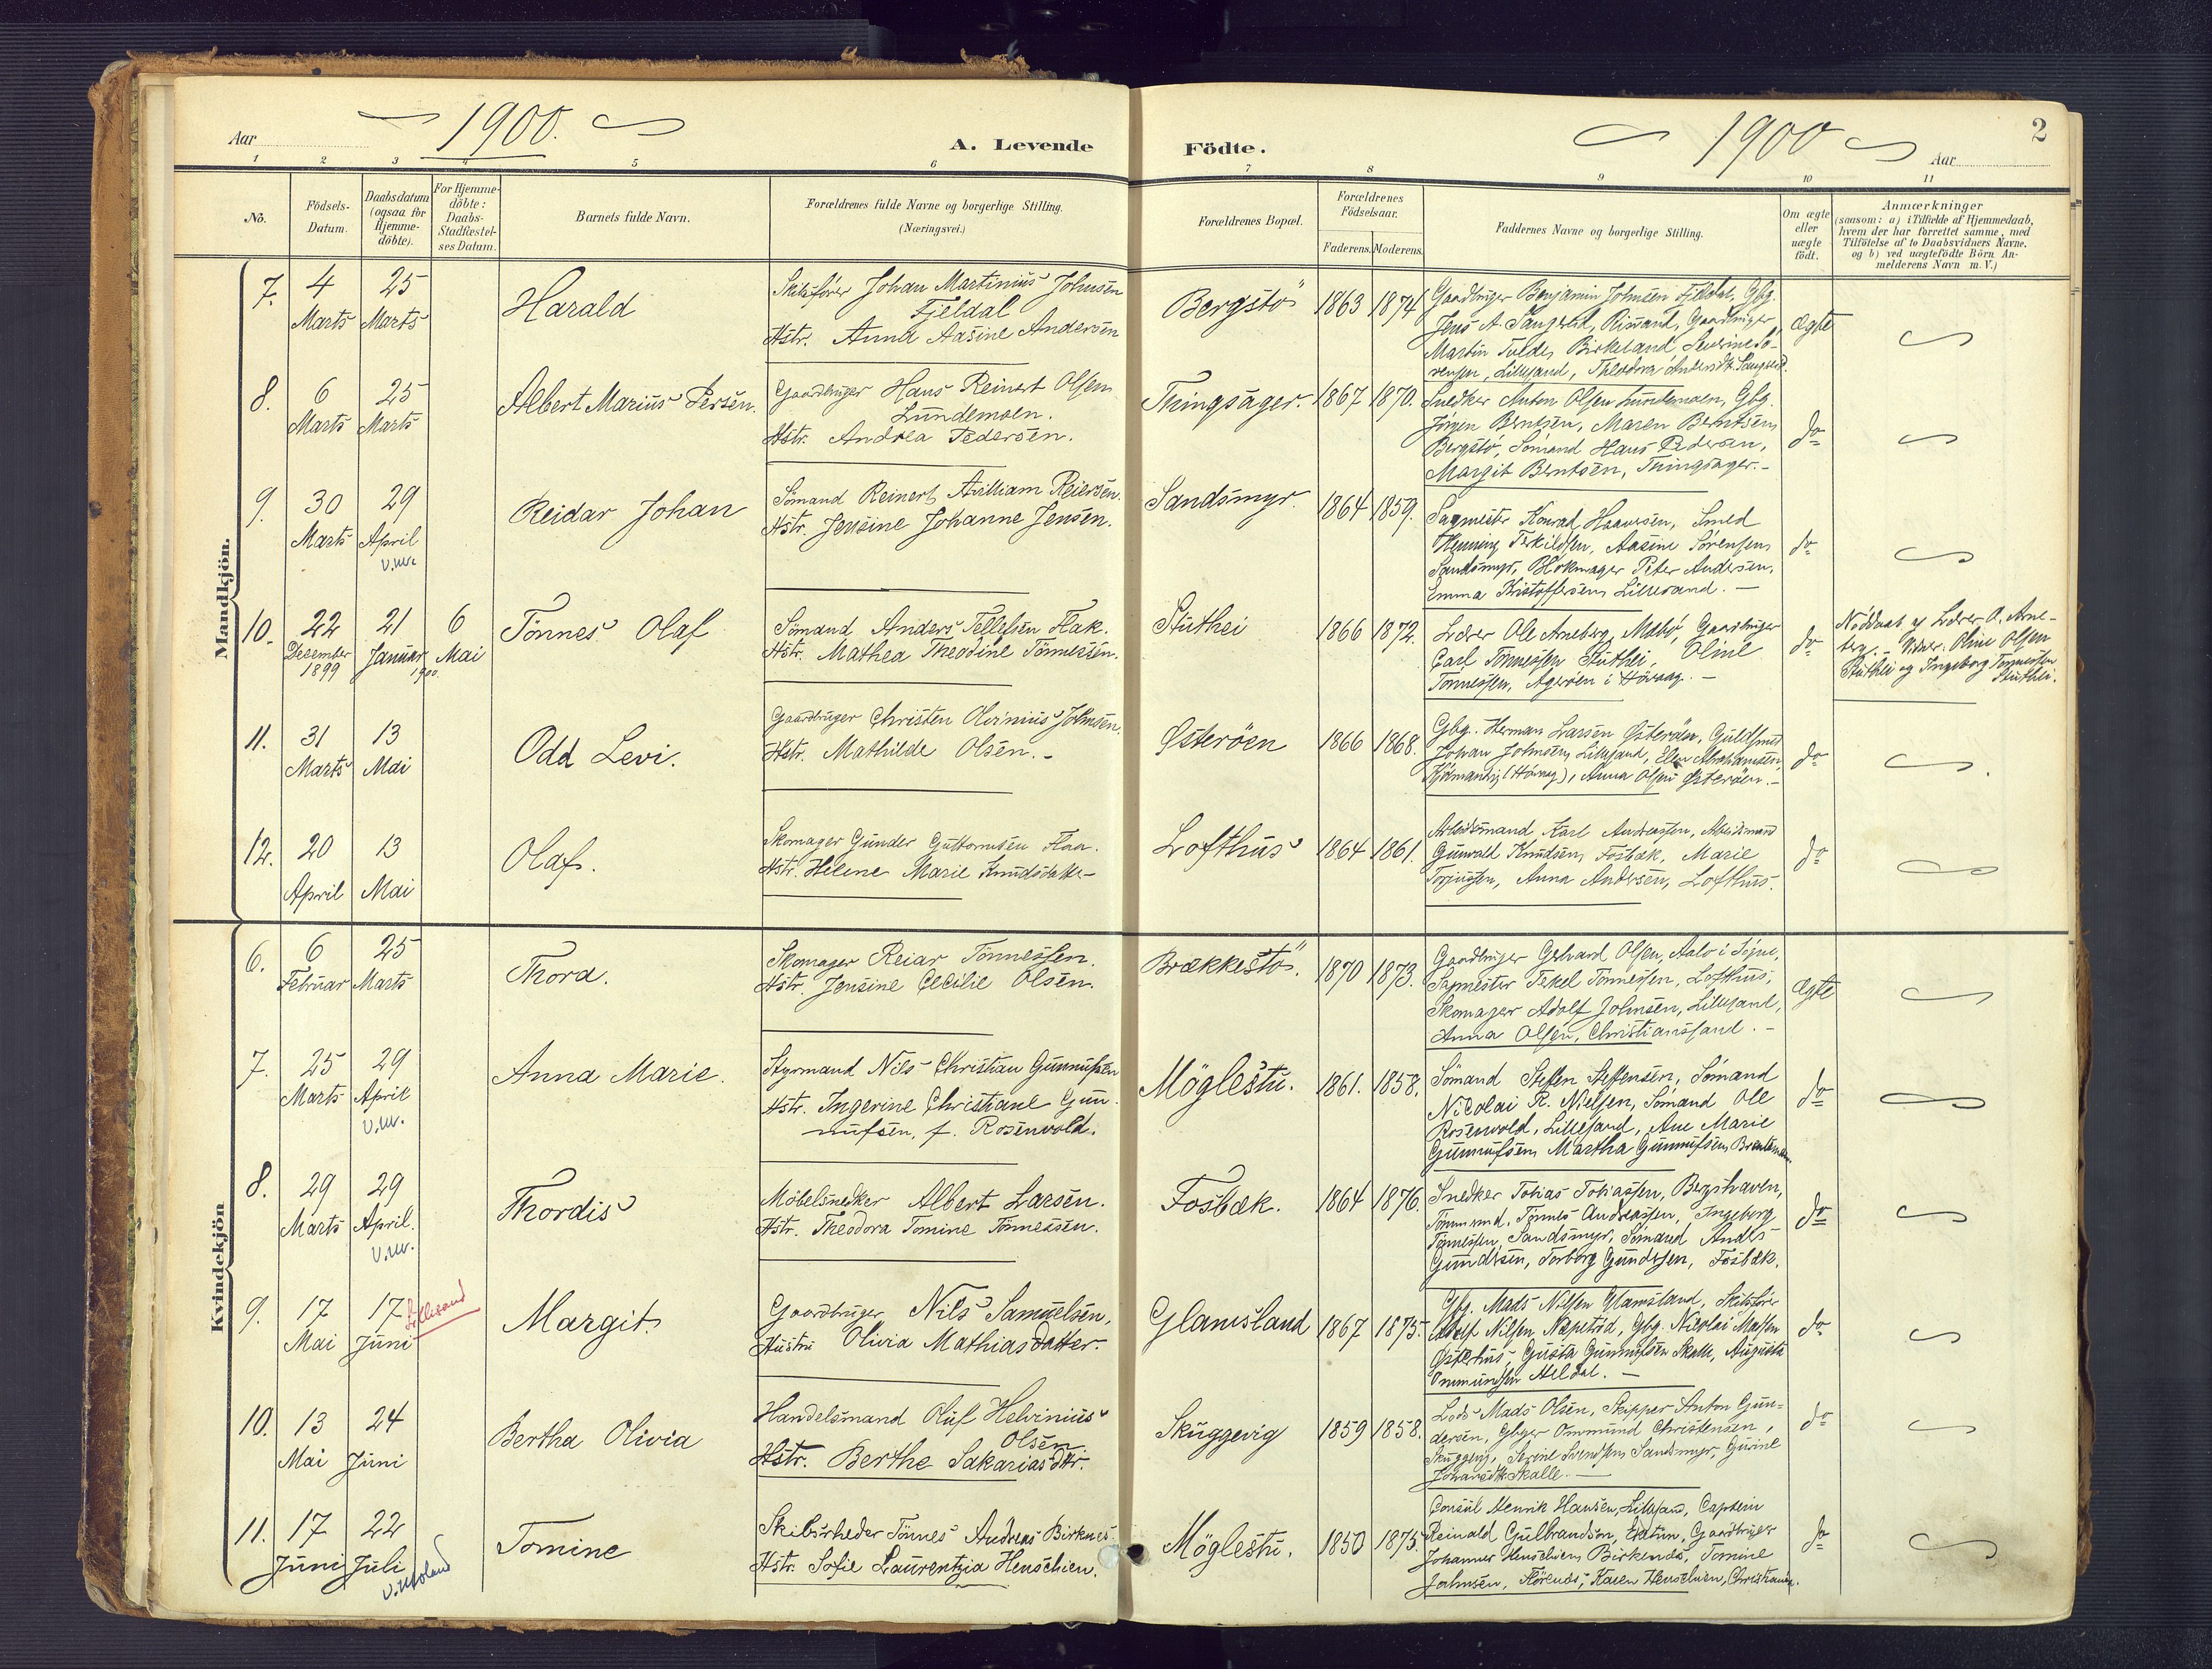 Aar 1900.
A. Levende Födte.
1900 Aar
2
1 2 3 4 5 6 7 8 9 10 11
No.
Födsels-
Datum.
Daabsdatum
(ogsaa for
Hjemme-
döbte).
For Hjemme-
döbte:
Daabs-
Stadfæstel-
ses Datum.
Barnets fulde Navn.
Forældrenes fulde Navne og borgerlige Stilling.
(Næringsvei.)
Forældrenes Bopæl.
Forældrenes
Födselsaar.
Faderens. Moderens.
Faddernes Navne og borgerlige Stilling.
Om ægte
eller
uægte
födt.
Anmærkninger
(saasom: a) i Tilfælde af Hjemmedaab,
hvem der har forrettet samme, med
Tilföielse af to Daabsvidners Navne,
og b) ved uægtefödte Börn An-
melderens Navn m. V.)
Mandkjön.
7.
4
Marts
25
Marts
Harald
Skibsfører Johan Martinius Johnsen
Fjeldal
Hstr. Anna Aasine Andersen
Bergstö
1863
1874
Gaardbruger Benjamin Johnsen Fjeldal, Gbg.
Jens A. Rimand, Gaardbruger
Martin Birkeland, Severine Sö-
rensen, Lillesand, Theodora Andersdtr.
ægte
8.
6
Marts
25
Marts
Albert Marius Persen.
Gaardbruger Hans Reinert Olsen
Lundemoen.
Hstr. Andrea Pedersen.
Thingsager.
1867
1870.
Snedker Anton Olsen Lundemoen, Gbg.
Jörgen Berntsen, Maren Berntsen,
Bergstö, Sömand Hans Pedersen,
Margit Berntsen, Thingsager.-
do
9.
30
Marts
29
April
v.m.
Reidar Johan
Sömand Reinert William Reiersen.
Hstr. Jensine Johanne Jensen.
Sandsmyr.
1864
1859.
Sagmester Konrad Haavesen, Smed
Henning Terkildsen, Aasine Sørensen,
Sandsmyr, Blokmager Peter Andersen,
Emma Kristoffersen, Lillesand. -
do
10.
22
December
1899
21
Januar
1900.
6
Mai
Tönnes Olaf
Sömand Anders Tellefsen Flak.
Hstr. Mathea Theodine Tönnessen.
Stuthei
1866
1872.
Lærer Ole Arneberg, Gaardbruger
Carl Tönnessen Stuthei, Oline
Tönnessen, Agerøen i Høvaag. -
do
Nøddøbt af Lærer O. Arne-
berg. - Vidner: Oline Olsen
Stuthei og Ingeborg Tönnessen
Stuthei.
11.
31
Marts
13
Mai
Odd Levi.
Gaardbruger Christen Olvinius Johnsen.
Hstr. Mathilde Olsen. -
Østerøen
1866
1868.
Gbg. Herman Larsen Østerøen, Guldsmed
Johan Johnsen, Lillesand, Ellen Abrahamsen,
(Høvaag), Anna Olsen Østerøen. -
do
12.
20
April
13
Mai
Olaf.
Skomager Gunder Guttormsen Flaa.
Hstr. Helene Marie Knudsdatter-
Lofthus
1864
1861.
Arbeidsmand Karl Andreassen, Arbeidsmand
Gunvald Knudsen, Fosbæk, Marie
Torjussen, Anna Andersen, Lofthus.
do
Kvindekjön
6.
6
Februar
25
Marts
Thora.
Skomager Reiar Tönnessen.
Hstr. Jensine Cecilie Olsen.
Brækkestö.
1870
1873.
Gaardbruger Gerhard Olsen, Aalo i Søgne,
Sagmester Tekel Tönnessen, Lofthus,
Skomager Adolf Johnsen, Lillesand,
Anna Olsen, Christianssand. -
ægte
7.
25
Marts
29
April
v.m.
Anna Marie.
Styrmand Nils Christian Gunnufsen
Hstr. Ingerine Christiane Gun-
nufsen, f. Rosenvold.
Möglestu.
1861.
1858.
Sömand Steffen Steffensen, Sömand
Nicolai R. Nielsen, Sömand Ole
Rosenvold, Lillesand, Ane Marie
Gunnufsen, Martha Gunnufsen,
do
8.
29
Marts
29
April.
v.m.
Thordis
Möbelsnedker Albert Larsen.
Hstr. Theodora Tomine Tönnessen.
Fosbæk.
1864
1876.
Snedker Tobias Tobiassen, Bergshaven,
Tömmermd. Tönnes Andreassen, Ingeborg
Tönnessen, Sandsmyr, Sömand Anders
Gundersen, Torborg Gundersen, Fosbæk.
do
9.
17
Mai
17
Juni
Lillesand
Margit
Gaardbruger Nils Samuelsen,
Hustru Olivia Mathiasdatter.
Glamsland
1867
1875.
Gbg. Mads Nilsen Glamsland, Skibsfører
Adolf Nilsen, Gbg. Nicolai Madsen
Østerhus, Gusta Gunnufsen Skalle, Augusta
Ommundsen Heldal. -
do
10.
13
Mai
24
Juni
Bertha Olivia
Handelsmand Oluf Helvinius
Olsen
Hstr. Berthe Sakariasdtr.
Skuggevig
1859
1858.
Lods Mads Olsen, Skipper Anton Gun-
dersen, Gbger Ommund Christensen,
Skuggevig, Serine Svendsen Sandsmyr, Gurine
Johansdtr. Skalle. -
do
11.
17
Juni
22
Juli
Tomine
Skibsrheder Tönnes Andreas Birknes
Hstr. Sofie Laurentzia Henschien.
Möglestu.
1850
1875.
Consul Henrik Hansen, Lillesand, Captein
Reinald Gulbrandson, Gaardbruger
Johannes Henschien, Birkenes, Tomine
Johnsen, Karen Henschien, Christiania.
do